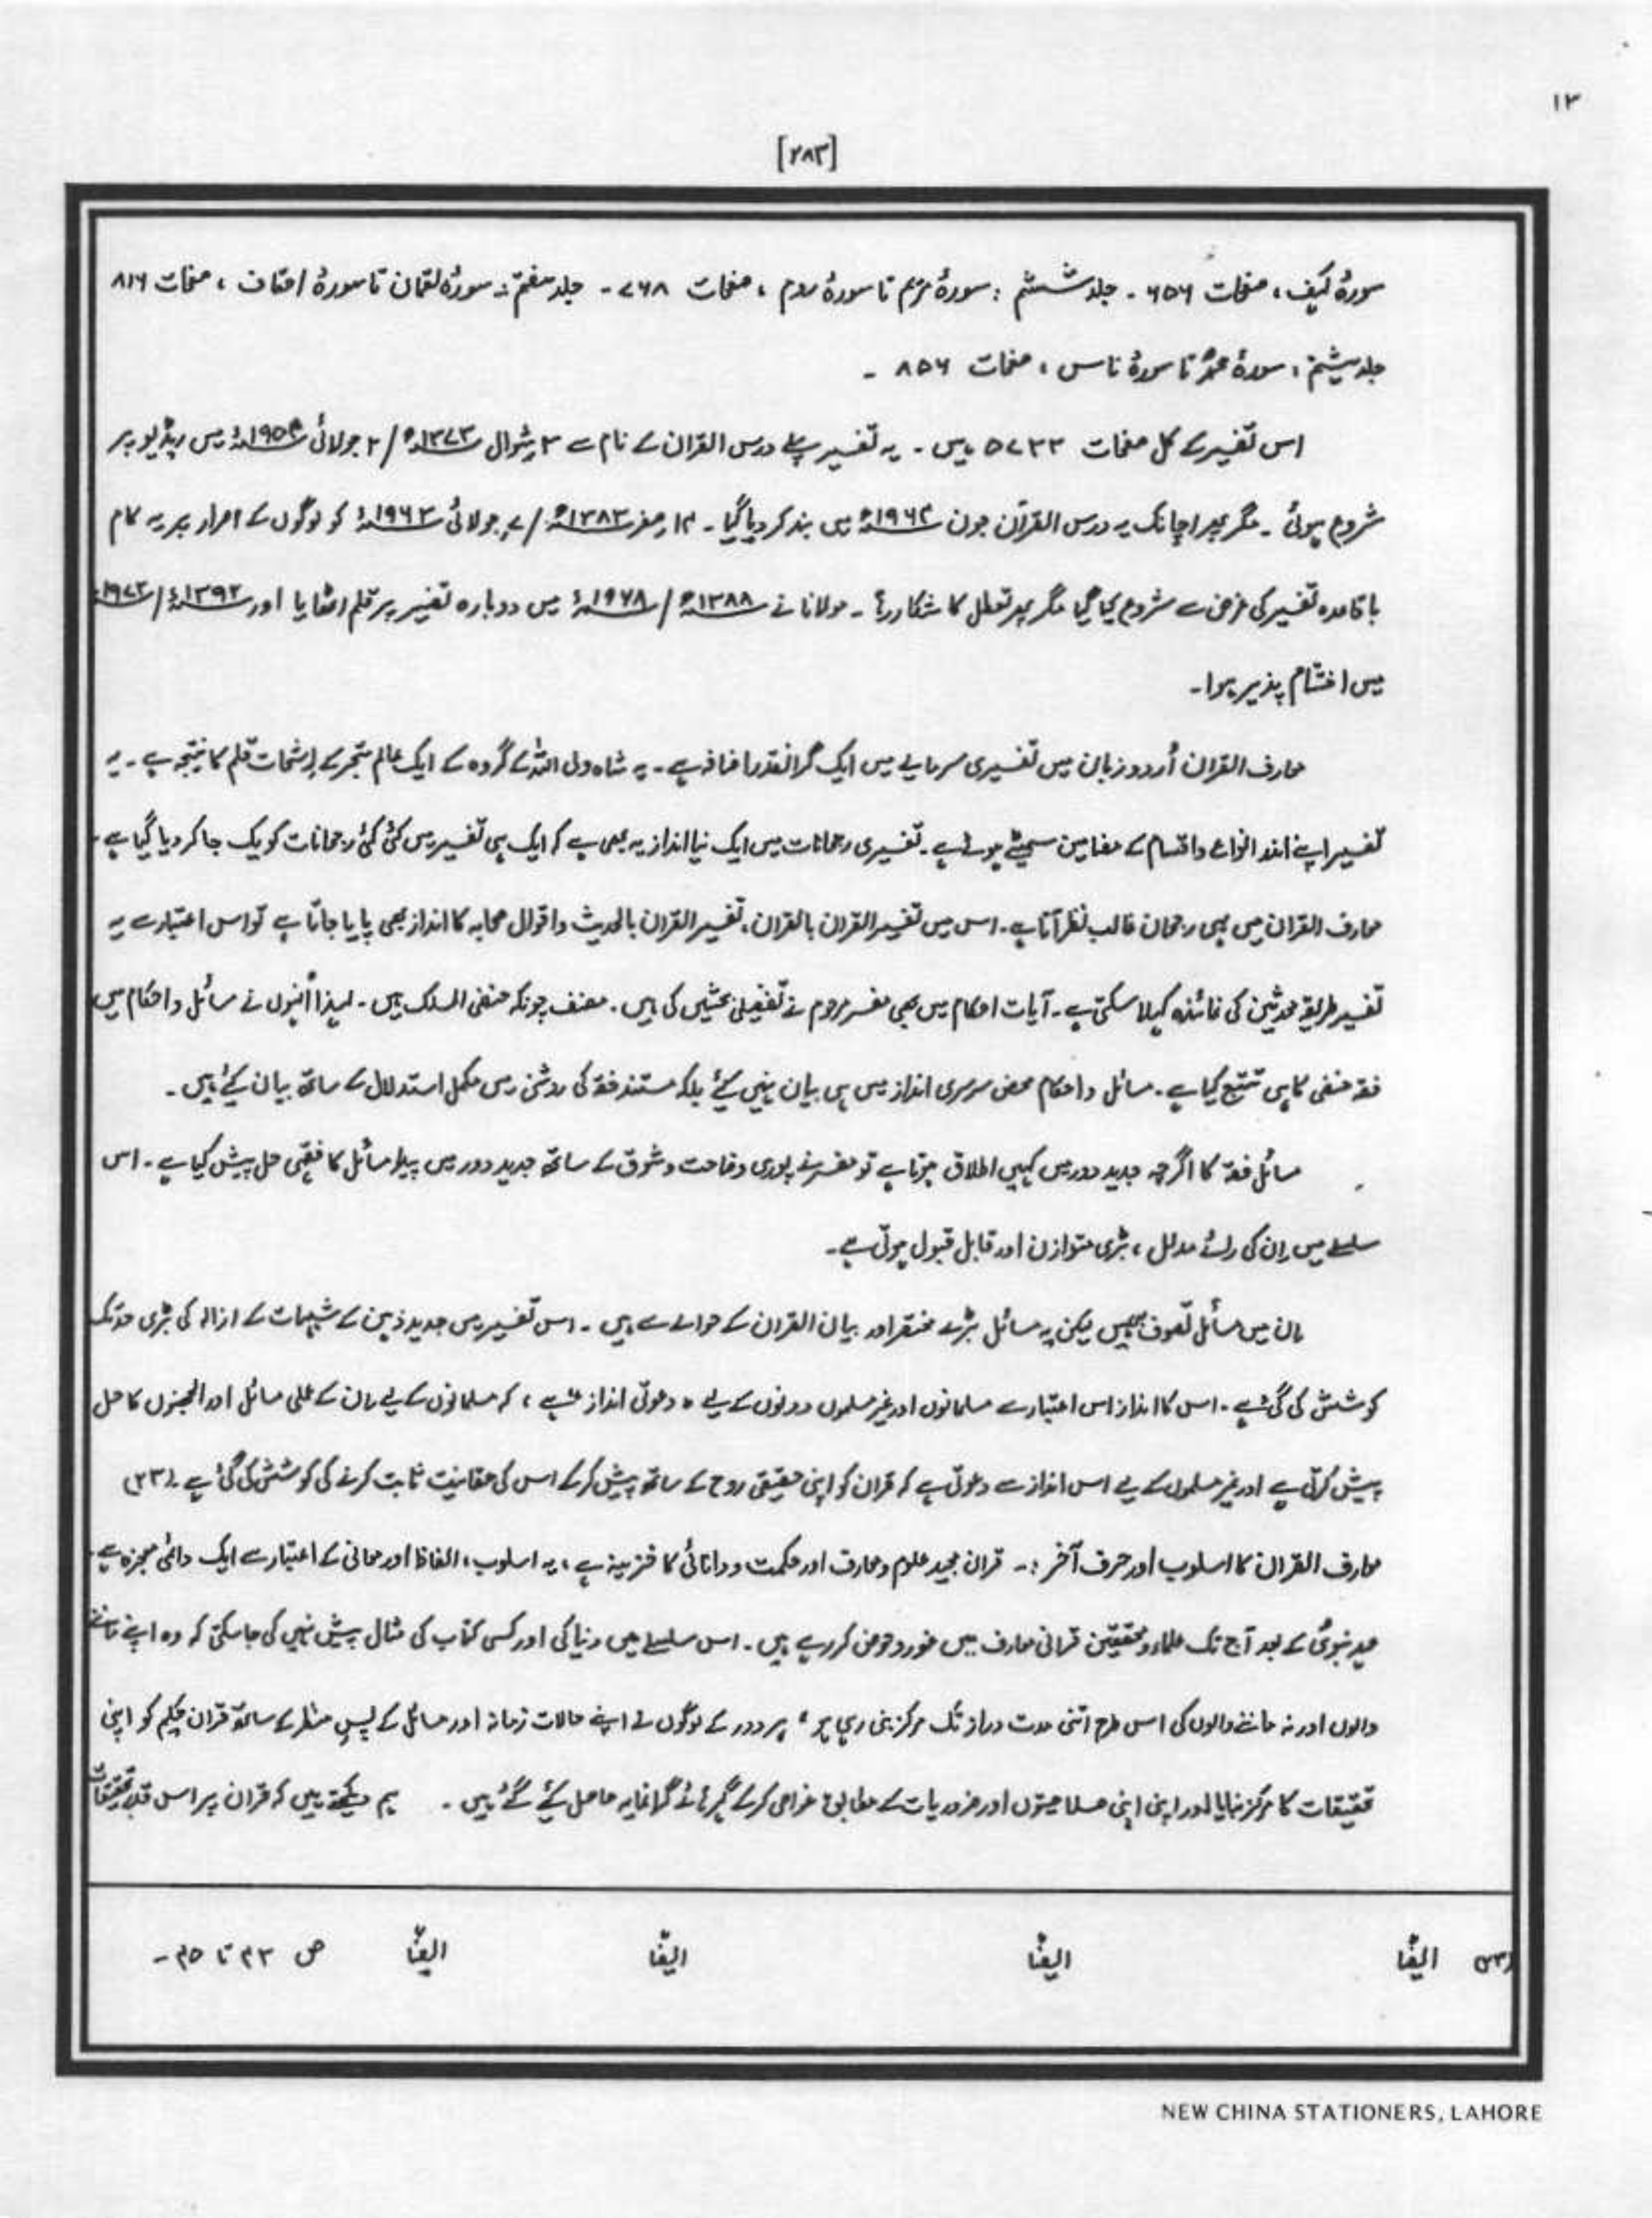 ۱۳
[۲۸۳]
سورۂ کہف ، صفحات ۶۵۶ ۔ جلد ششم : سورۂ مریم تا سورۂ روم ، صفحات ۷۶۸ ۔ جلد ہفتم : سورۂ لقمان تا سورۂ احقاف ، صفحات ۸۱۶
جلد ہشتم : سورۂ محمدؐ تا سورۂ ناس ، صفحات ۸۵۶ ۔
اس تفسیر کے کل صفحات ۵۷۳۳ ہیں ۔ یہ تفسیر پہلے درس القرآن کے نام سے ۳ شوال ۱۳۷۳ھ / ۲ جولائی ۱۹۵۴ء میں ریڈیو پر
شروع ہوئی ۔ مگر پھر اچانک یہ درس القرآن جون ۱۹۶۴ء میں بند کر دیا گیا ۔ ۱۴ صفر ۱۳۸۳ھ / ۷ جولائی ۱۹۶۳ء کو لوگوں کے اصرار پر یہ کام
باقاعدہ تفسیر کی غرض سے شروع کیا گیا مگر پھر تعطل کا شکار رہا ۔ مولانا نے ۱۳۸۸ھ / ۱۹۶۸ء میں دوبارہ تفسیر پر قلم اٹھایا اور ۱۳۹۲ھ / ۱۹۷۲ء
میں اختتام پذیر ہوا ۔
معارف القران اُردو زبان میں تفسیری سرمایے میں ایک گرانقدر اضافہ ہے ۔ یہ شاہ ولی اللہؒ کے گروہ کے ایک عالم متبحر کے رشحات قلم کا نتیجہ ہے ۔ یہ
تفسیر اپنے اندر انواع و اقسام کے مضامین سمیٹے ہوئے ہے ۔ تفسیری رجحانات میں ایک نیا انداز یہ بھی ہے کہ ایک ہی تفسیر میں کئی کئی رجحانات کو یک جا کر دیا گیا ہے ۔
معارف القران میں یہی رجحان غالب نظر آتا ہے ۔ اس میں تفسیر القران بالقران ، تفسیر القران بالحدیث و اقوال صحابہ کا انداز بھی پایا جاتا ہے تو اس اعتبار سے یہ
تفسیر طریقۂ محدثین کی نمائندہ کہلا سکتی ہے ۔ آیات احکام میں بھی مفسر مرحوم نے تفصیلی بحثیں کی ہیں ۔ مصنف چونکہ حنفی المسلک ہیں ۔ لہٰذا اُنہوں نے مسائل و احکام میں
فقہ حنفی کا ہی تتبع کیا ہے ۔ مسائل و احکام محض سرسری انداز میں ہی بیان نہیں کیٔے بلکہ مستند فقہ کی روشنی میں مکمل استدلال کے ساتھ بیان کیٔے ہیں ۔
مسائل فقہ کا اگرچہ جدید دور میں کہیں اطلاق ہوتا ہے تو مفسر نے پوری وضاحت و شوق کے ساتھ جدید دور میں پیدا مسائل کا فقہی حل پیش کیا ہے ۔ اس
سلسلے میں اِن کی رائے مدلل ، بڑی متوازن اور قابل قبول ہوتی ہے ۔
اِن میں مسائل تصوف بھی ہیں لیکن یہ مسائل بڑے مختصر اور بیان القران کے حوالے سے ہیں ۔ اس تفسیر میں جدید ذہن کے شبہات کے ازالہ کی بڑی حد تک
کوشش کی گئی ہے ۔ اس کا انداز اس اعتبار سے مسلمانوں اور غیر مسلموں دونوں کے لیے " دعوتی انداز " ہے ، کہ مسلمانوں کے لیے اِن کے عملی مسائل اور الجھنوں کا حل
پیش کرتی ہے اور غیر مسلموں کے لیے اس انداز سے دعوتی ہے کہ قران کو اپنی حقیقی روح کے ساتھ پیش کر کے اس کی حقانیت ثابت کرنے کی کوشش کی گئی ہے ۔ (۲۳)
معارف القران کا اسلوب اور حرف آخر :۔ قران مجید علوم و معارف اور حکمت و دانائی کا خزینہ ہے ، یہ اسلوب ، الفاظ اور معانی کے اعتبار سے ایک دائمی معجزہ ہے ۔
عہد نبویؐ کے بعد آج تک علماء و محققین قرانی معارف میں غور و خوض کر رہے ہیں ۔ اس سلسلے میں دنیا کی اور کسی کتاب کی مثال پیش نہیں کی جا سکتی کہ وہ اپنے ماننے
والوں اور نہ ماننے والوں کی اس طرح اتنی مدت دراز تک مرکز بنی رہی ہو ، ہر دور کے لوگوں نے اپنے حالات زمانہ اور مسائل کے پسِ منظر کے ساتھ قران حکیم کو اپنی
تحقیقات کا مرکز بنایا اور اپنی اپنی صلاحیتوں اور ضروریات کے مطابق غواصی کر کے گہر ہائے گرانمایہ حاصل کیٔے گئے ہیں ۔ ہم دیکھتے ہیں کہ قران پر اس قدر تحقیقات
(۲۳) ایضًا ایضًا ایضًا ایضًا ص ۴۳ تا ۴۵ ۔
NEW CHINA STATIONERS, LAHORE